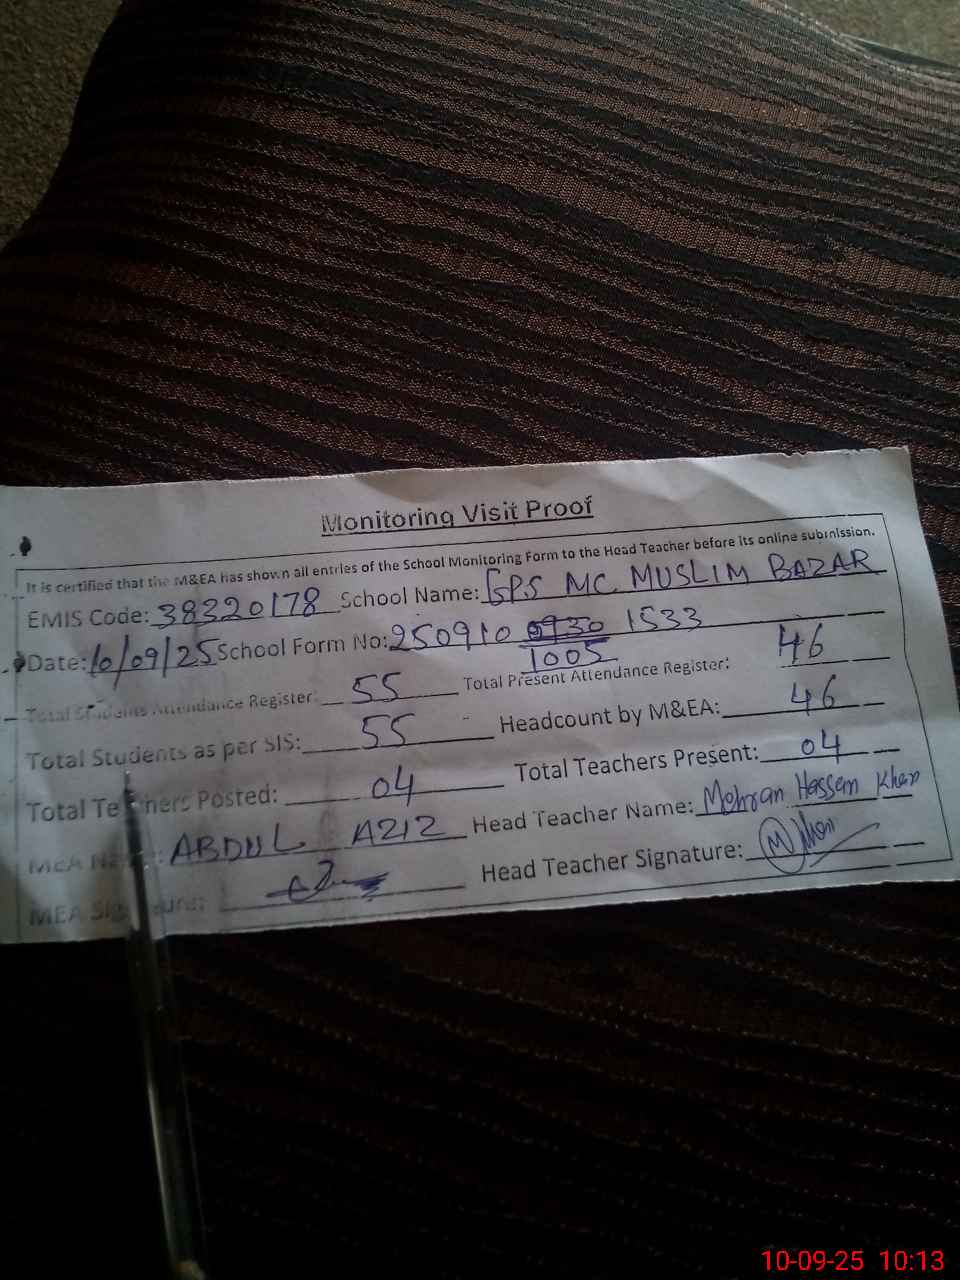 Monitoring Visit Proof
It is certified that the M&EA has shown all entries of the School Monitoring Form to the Head Teacher before its online submission.
EMIS Code: 38320178 School Name: GPS MC MUSLIM BAZAR
Date: 10/09/25 School Form No: 250910 0930 1533
1005
Total Students Attendance Register: 55 Total Present Attendance Register: 46
Total Students as per SIS: 55 Headcount by M&EA: 46
Total Teachers Posted: 04 Total Teachers Present: 04
MEA Name: ABDUL AZIZ Head Teacher Name: Mohran Hassan Khan
MEA Signature: Head Teacher Signature:
10-09-25 10:13